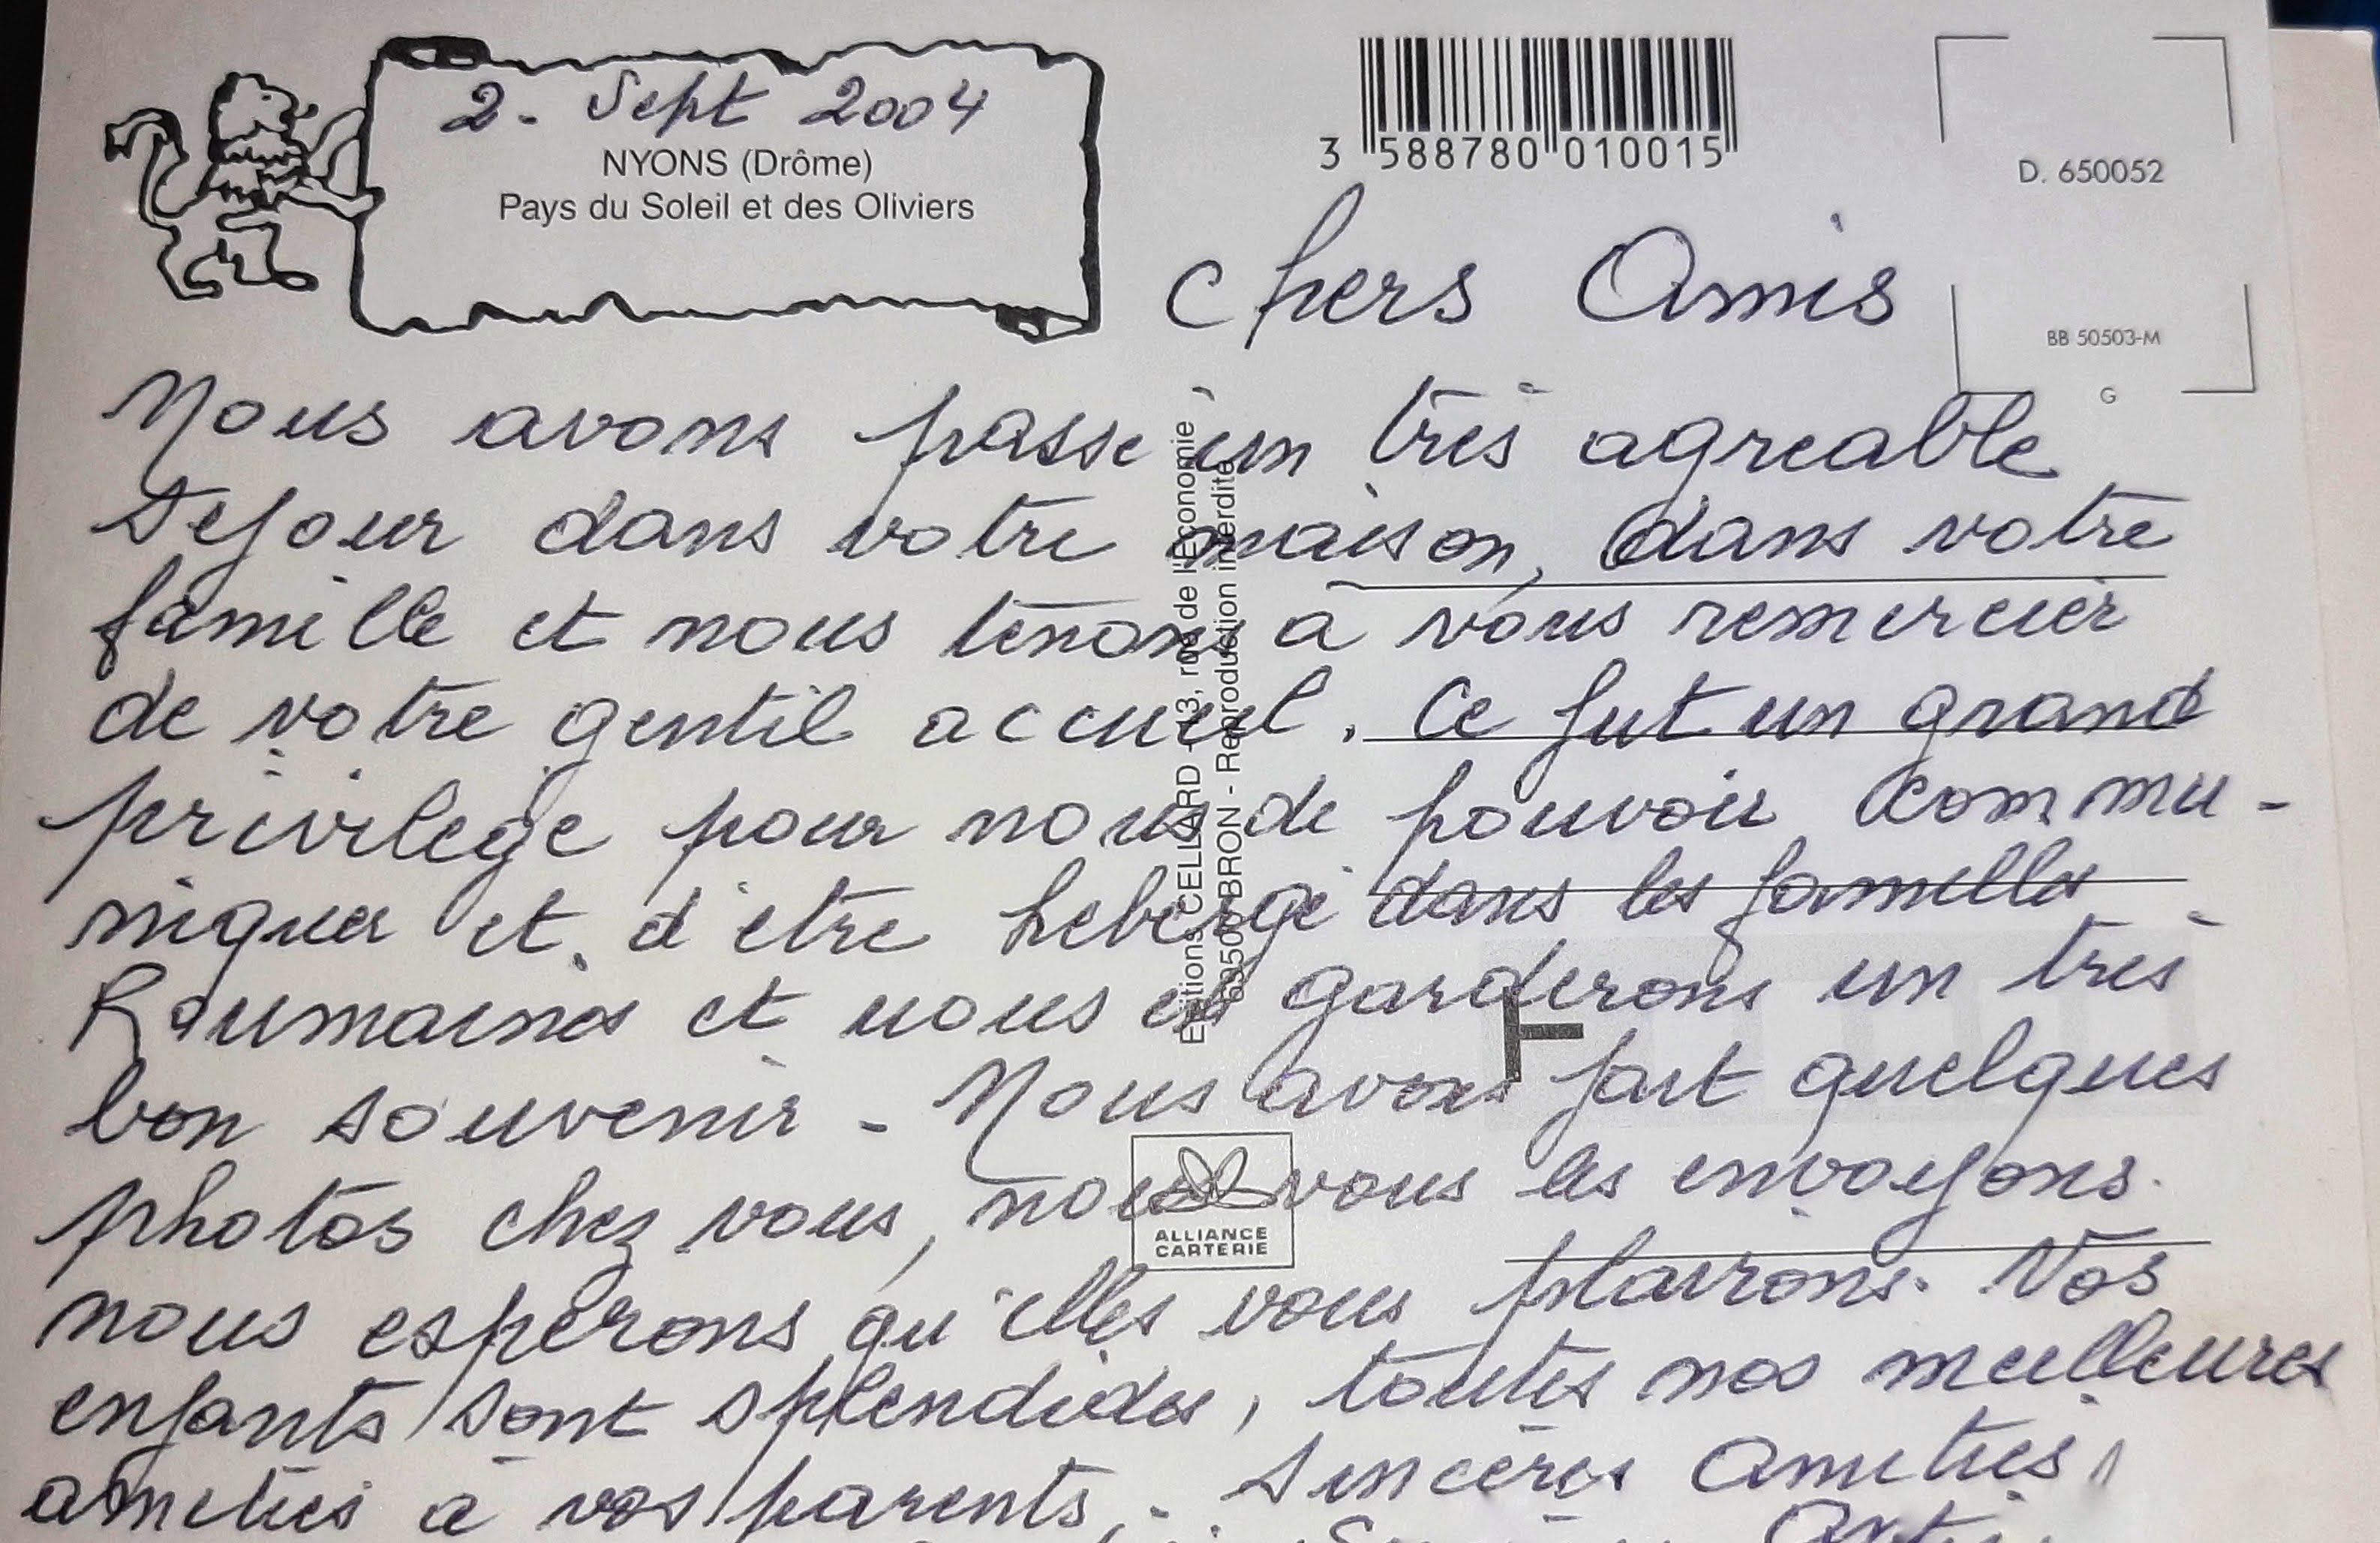 2. Sept 2004
NYONS (Drôme)
Pays du Soleil et des Oliviers
3 588780 010015
D. 650052
BB 50503-M
G
Chers Amis
Nous avons passé un très agreable
sejour dans votre maison, dans votre
famille et nous tenons à vous remercier
de votre gentil accueil. Ce fut un grand
privilège pour nous de pouvoir commu-
niquer et d'etre hebergé dans les familles
Roumaines et nous en garderons un très
bon souvenir - Nous avons fait quelques
photos chez vous, nous vous les envoyons.
nous esperons qu'elles vous plairons. Vos
enfants sont splendides, toutes nos meilleures
amitiés à vos parents,
sincères Amitiés
Editions CELLARD - 13, rue de l'Economie
69500 BRON - Reproduction interdite
ALLIANCE
CARTERIE